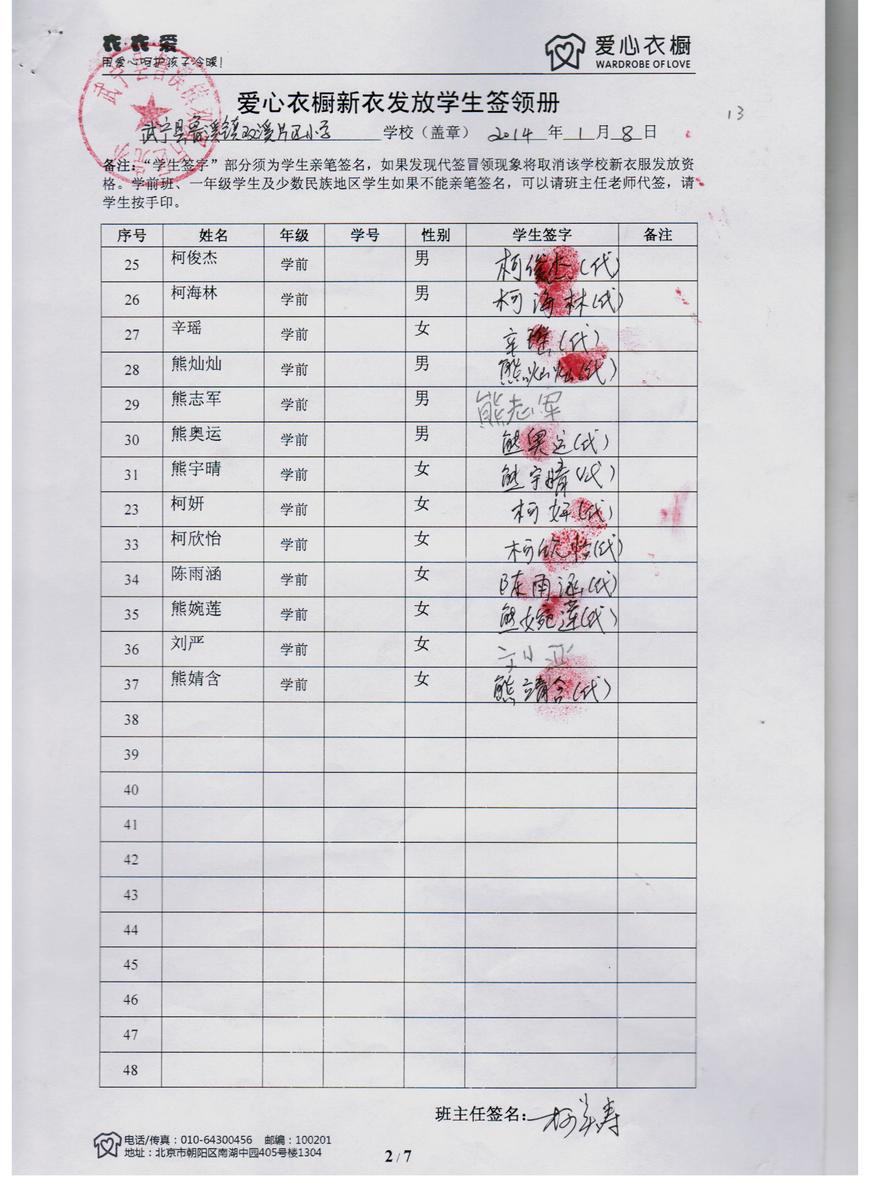 衣·衣·爱
用爱心呵护孩子冷暖!
爱心衣橱
WARDROBE OF LOVE
爱心衣橱新衣发放学生签领册
13
武宁县鲁溪镇双溪片区小学 学校（盖章） 2014 年 1 月 8 日
备注：“学生签字”部分须为学生亲笔签名，如果发现代签冒领现象将取消该学校新衣服发放资
格。学前班、一年级学生及少数民族地区学生如果不能亲笔签名，可以请班主任老师代签，请
学生按手印。
序号 姓名 年级 学号 性别 学生签字 备注
25 柯俊杰 学前 男 柯俊杰(代)
26 柯海林 学前 男 柯海林(代)
27 辛瑶 学前 女 辛瑶(代)
28 熊灿灿 学前 男 熊灿灿(代)
29 熊志军 学前 男 熊志军
30 熊奥运 学前 男 熊奥运(代)
31 熊宇晴 学前 女 熊宇晴(代)
23 柯妍 学前 女 柯妍(代)
33 柯欣怡 学前 女 柯欣怡(代)
34 陈雨涵 学前 女 陈雨涵(代)
35 熊婉莲 学前 女 熊婉莲(代)
36 刘严 学前 女
37 熊婧含 学前 女 熊婧含(代)
38
39
40
41
42
43
44
45
46
47
48
班主任签名：
电话/传真：010-64300456 邮编：100201
地址：北京市朝阳区南湖中园405号楼1304
2 / 7